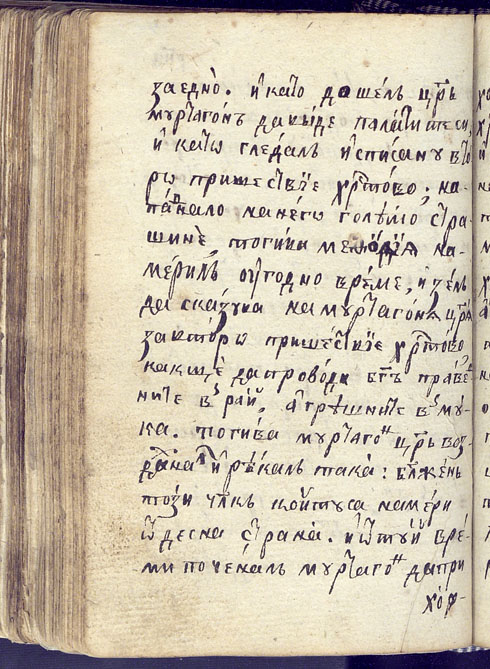 заедно̀. и҆ като доше́лъ цр҃ь
мꙋртаго́нъ да вы́де пала́ти те си,
и҆ като гледалъ и҆списанꙋ вто
ро пришествїе хрⷭ҇тово; на-
па́днало на него голѣмо стра-
шинѐ, тогива меѳо́дїа на-
мерилъ оу҆годно вре́ме, и҆ зе́лъ
да сказꙋва на мꙋртаго́на цр҃ѧ
за второ пришествїе хрⷭ҇тово
как ще да проводи бг҃ъ праве-
ните в раи́, а҆ грѣшните в мꙋ-
ка. тогива мꙋртагоⷩ цр҃ь воз-
и҆ ре́калъ така̀: бл҃женъ
този чл҃къ кои́туса намери
ѿ десна страна̀. и҆ ѿ тꙋи́ вре́-
ми почекалъ мꙋртагоⷩ да при
хо́д-